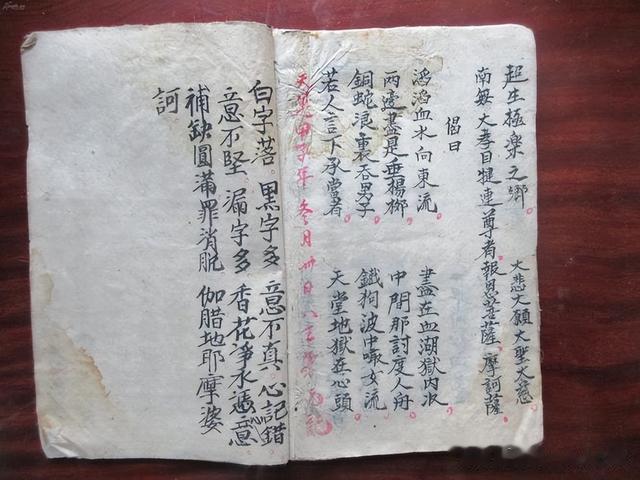 超生極樂之鄉 大悲大願大聖大慈
南無大孝目犍連尊者報恩菩薩摩訶薩
偈曰
滔滔血水向東流 盡在血湖獄內收
兩边盡是垂楊柳 中間那討度人舟
銅蛇浪裏吞男子 鐵狗波中啣女流
若人言下承當者 天堂地獄在心頭
天運甲子年冬月卅日
白字落黑字多意不真心記錯
意不堅漏字多香花淨水遞意
補缺圓滿罪消脫伽腊地耶摩婆
訶